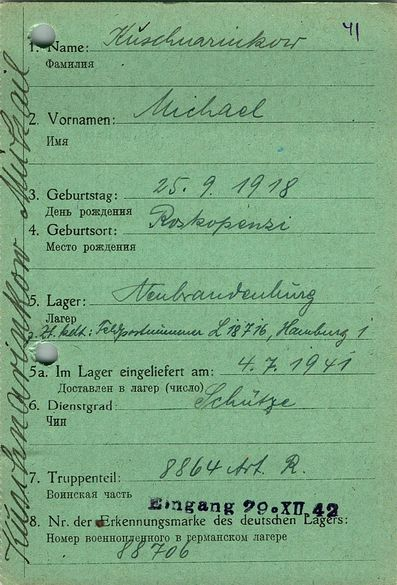 41
1. Name: Kuschnarinkow
Фамилия
2. Vornamen: Michael
Имя
3. Geburtstag: 25. 9. 1918
День рождения
4. Geburtsort: Roskopenzi
Место рождения
5. Lager: Neubrandenburg
Лагер
z. Zt. kdt: Feldpostnummer L 18716, Hamburg 1
5a. Im Lager eingeliefert am: 4. 7. 1941
Доставлен в лагер (число)
6. Dienstgrad: Schütze
Чин
7. Truppenteil: 8864 Art. R.
Воинская часть
Eingang 29. XII. 42
8. Nr. der Erkennungsmarke des deutschen Lagers:
Номер военнопленного в германском лагере
88706